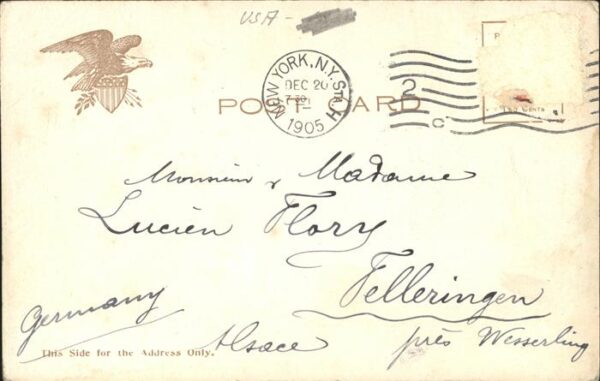 USA -
NEW YORK, N.Y. STA. H
DEC 20
7-30
1905
2
C
POST CARD
Two Cents
Monsieur & Madame
Lucien Flory
Felleringen
près Wesserling
Germany
Alsace
This Side for the Address Only.